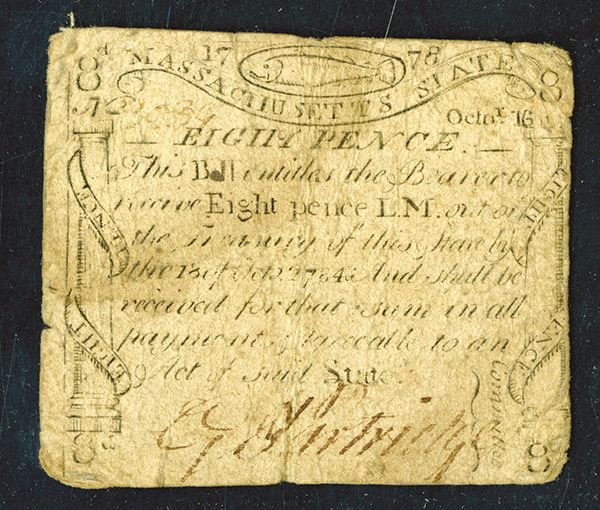 8d 17 78 8d
MASSACHUSETTS STATE
No Octor. 16
EIGHT PENCE.
This Bill entitles the Bearer to
receive Eight pence L.M. out of
the Treasury of this State by
the 18 of Octr. 1784. And shall be
received for that sum in all
payments agreeable to an
Act of said State.
EIGHT PENCE
EIGHT PENCE
Committee
Partridge
8
8